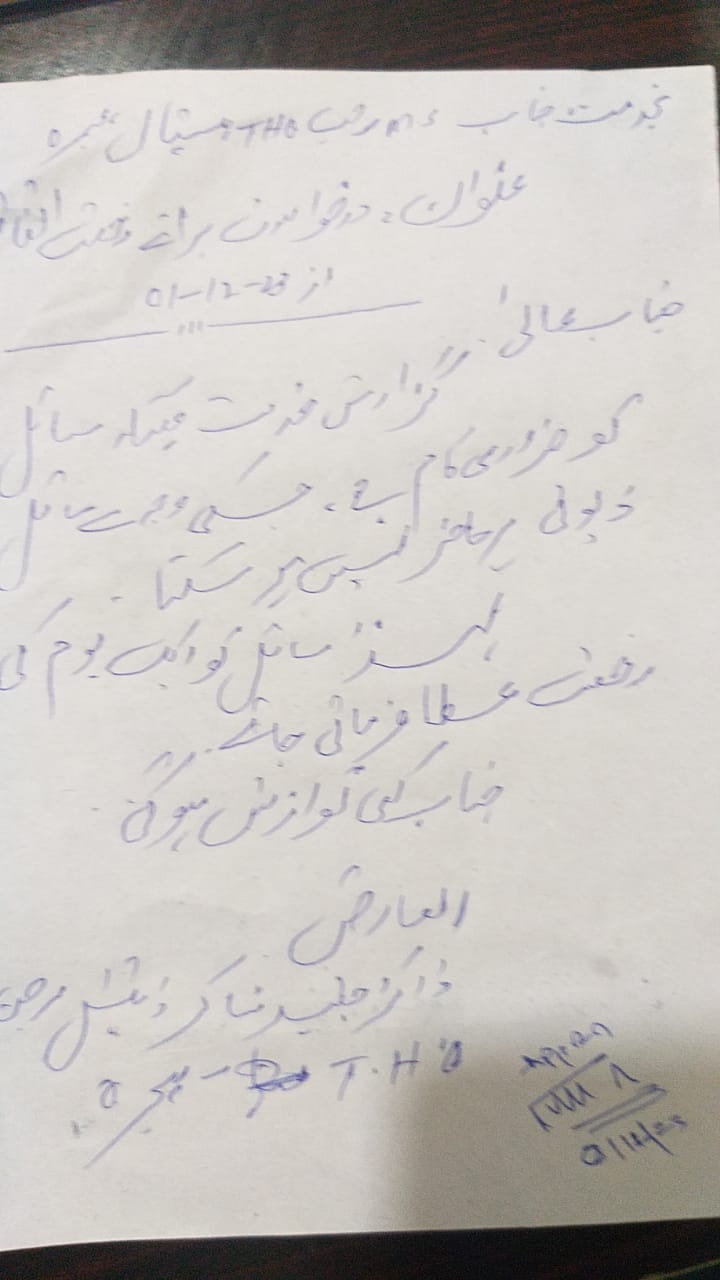 بخدمت جناب MS صاحب THQ ہسپتال
عنوان: درخواست برائے رخصت اتفاقیہ
از 01-12-23
جناب عالیٰ!
گزارش خدمت ہیکہ سائل
کو ضروری کام ہے، جسکی وجہ سے سائل
ڈیوٹی پر حاضر نہیں ہو سکتا۔
لہذا سائل کو ایک یوم کی
رخصت عطا فرمائی جائے۔
جناب کی نوازش ہوگی
العارض
ڈاکٹر شاکر ڈینٹل سرجن
T.H.Q